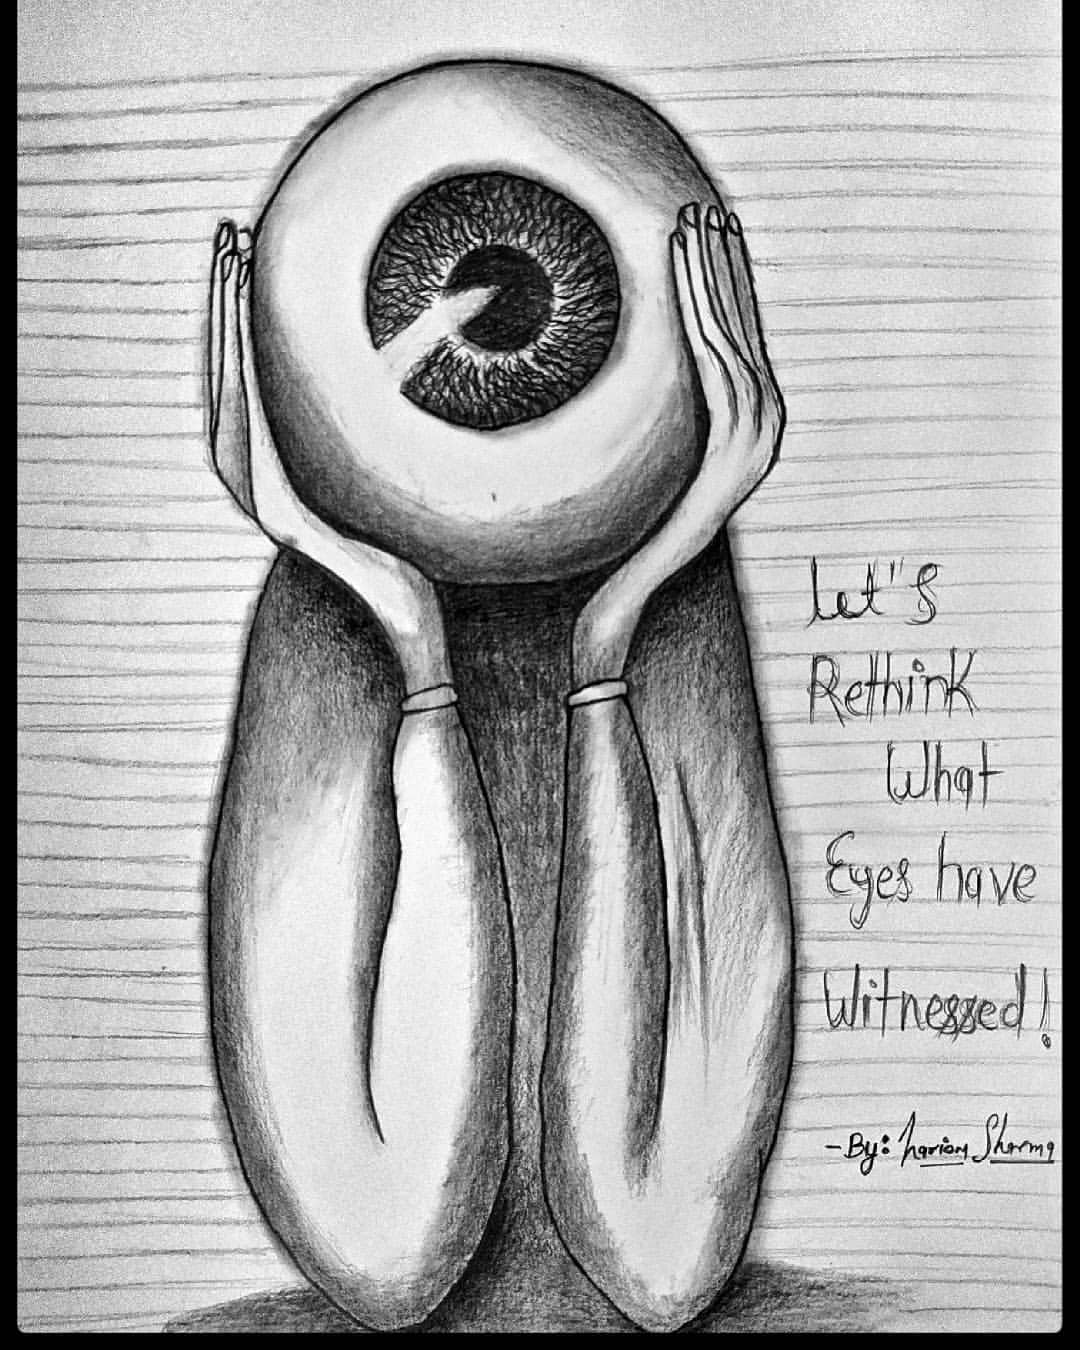 Let's
Rethink
What
Eyes have
Witnessed!
- By: Hariom Sharma